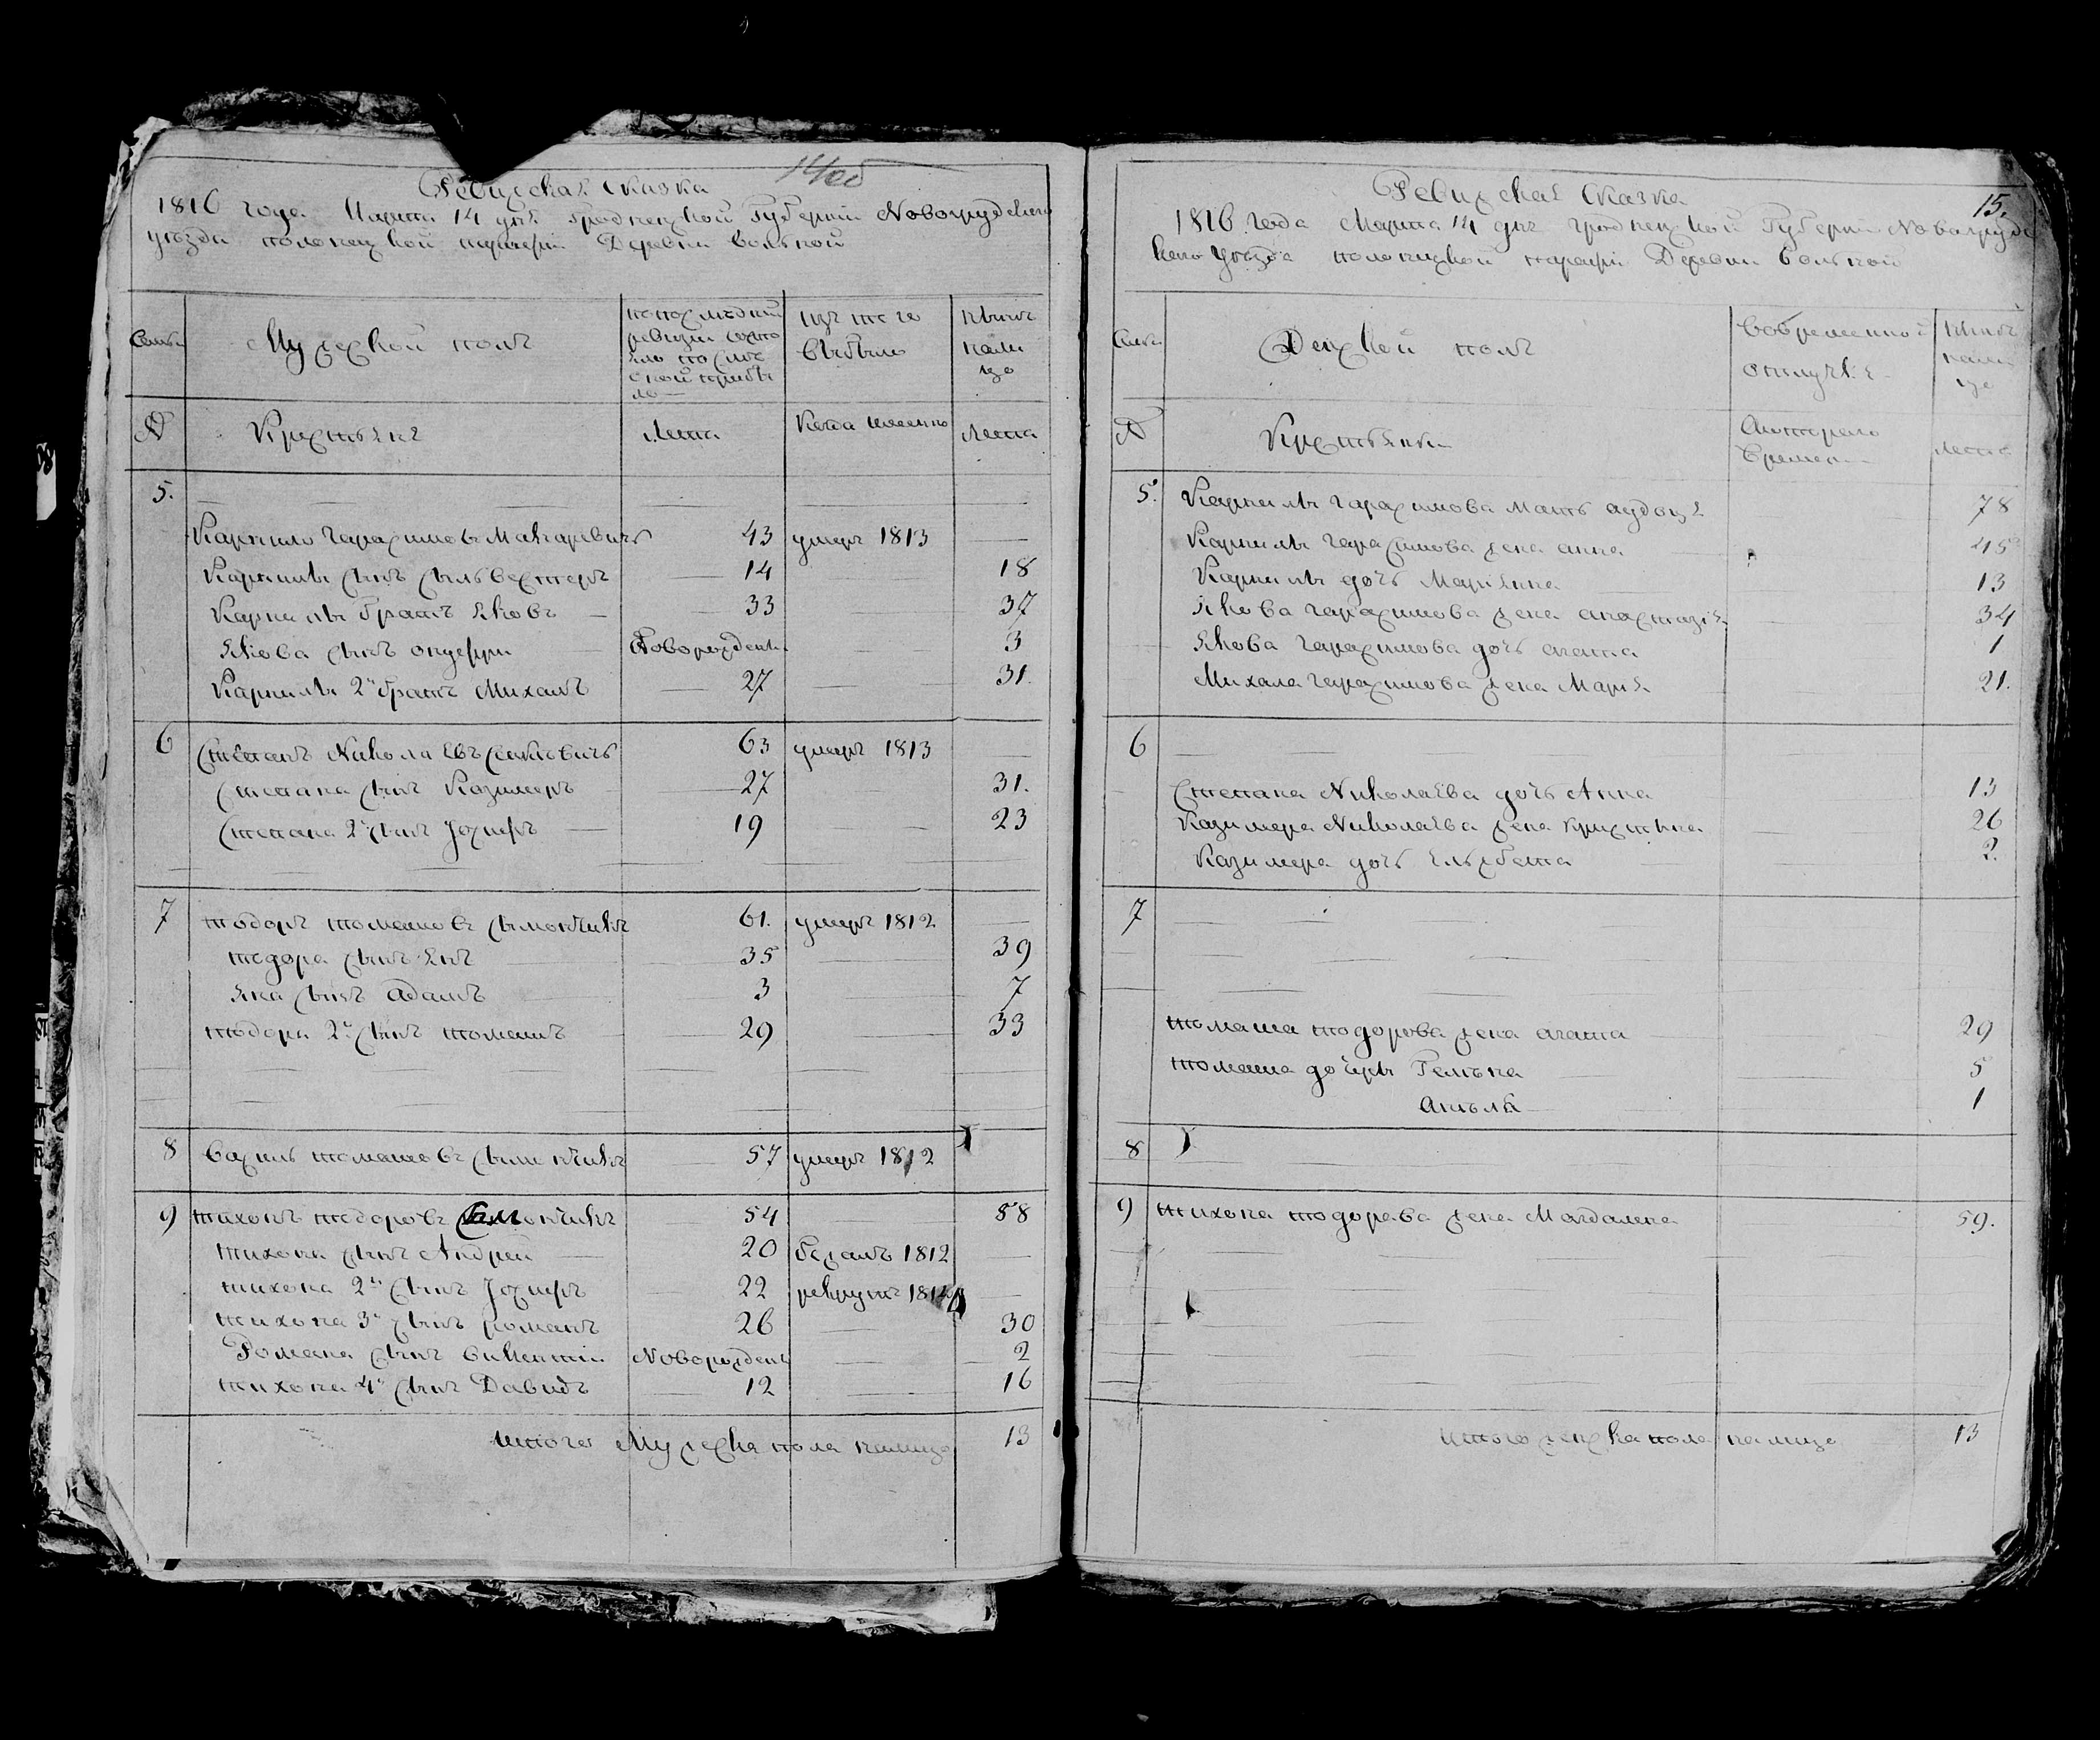 14об
Ревизская сказка
1816 года Марта 14 дня Гродненской Губернии Новогрудского
уезда полонецкой парафии Деревни Вольной
Семьи
Мужеской полъ
попоследней ревизии состояло и после оной прибыло
изъ того выбыло
ныне налицо
№
Крестьяне
лета
Когда именно
лета
5.
Карнило Гарасимовъ Макаревичъ 43 умеръ 1813
Карнилы сынъ Сыльвестеръ 14 18
Карнилы братъ Яковъ 33 37
Якова сынъ Онуфри Новорожденъ 3
Карнилы 2й братъ Михалъ 27 31.
6 Степанъ Николаевъ 63 умеръ 1813
Степана сынъ Казимеръ 27 31.
Степана 2й сынъ Іозефъ 19 23
7 Тодоръ Томашовъ Сымончикъ 61. умеръ 1812
Тодора сынъ Янъ 35 39
Яна сынъ Адамъ 3 7
Тодора 2й сынъ Томашъ 29 33
8 Василь Томашовъ Сымончикъ 57 умеръ 1812
9 Тихонъ Тодоровъ Сымончикъ 54 58
Тихона сынъ Андрей 20 бежалъ 1812
Тихона 2й сынъ Іозефъ 22 рекрутъ 1814
Тихона 3й сынъ Романъ 26 30
Романа сынъ Викентій Новорожденъ 2
Тихона 4й сынъ Давидъ 12 16
Итого Мужеска пола налицо 13
15.
Ревизская Сказка
1816 года Марта 14 дня Гродненской Губерніи Новогруд
ского уезда полонецкой парафіи Деревни Вольной
Семьи
Женской полъ
Вовременной отлучке
ныне налицо
№
Крестьянки
Скоторого времени
лета
5. Карнилы Гарасимова мать Аудоця 78
Карнилы Гарасимова жена Анна 45
Карнилы дочь Марьяна 13
Якова Гарасимова жена Анастазія 34
Якова Гарасимова дочь Агата 1
Михала Гарасимова жена Марія 21.
6
Степана Николаева дочь Анна 13
Казимера Николаева жена Кристына 26
Казимера дочь Эльжбета 2.
7
Томаша Тодорова жена Агата 29
Томаша дочеры Гелена 5
Анеля 1
8
9 Тихона Тодорова жена Магдалена 59.
Итого женска пола налицо 13